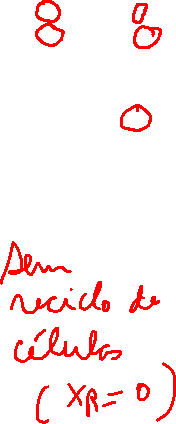 Sem
reciclo de
células
(XR=0)